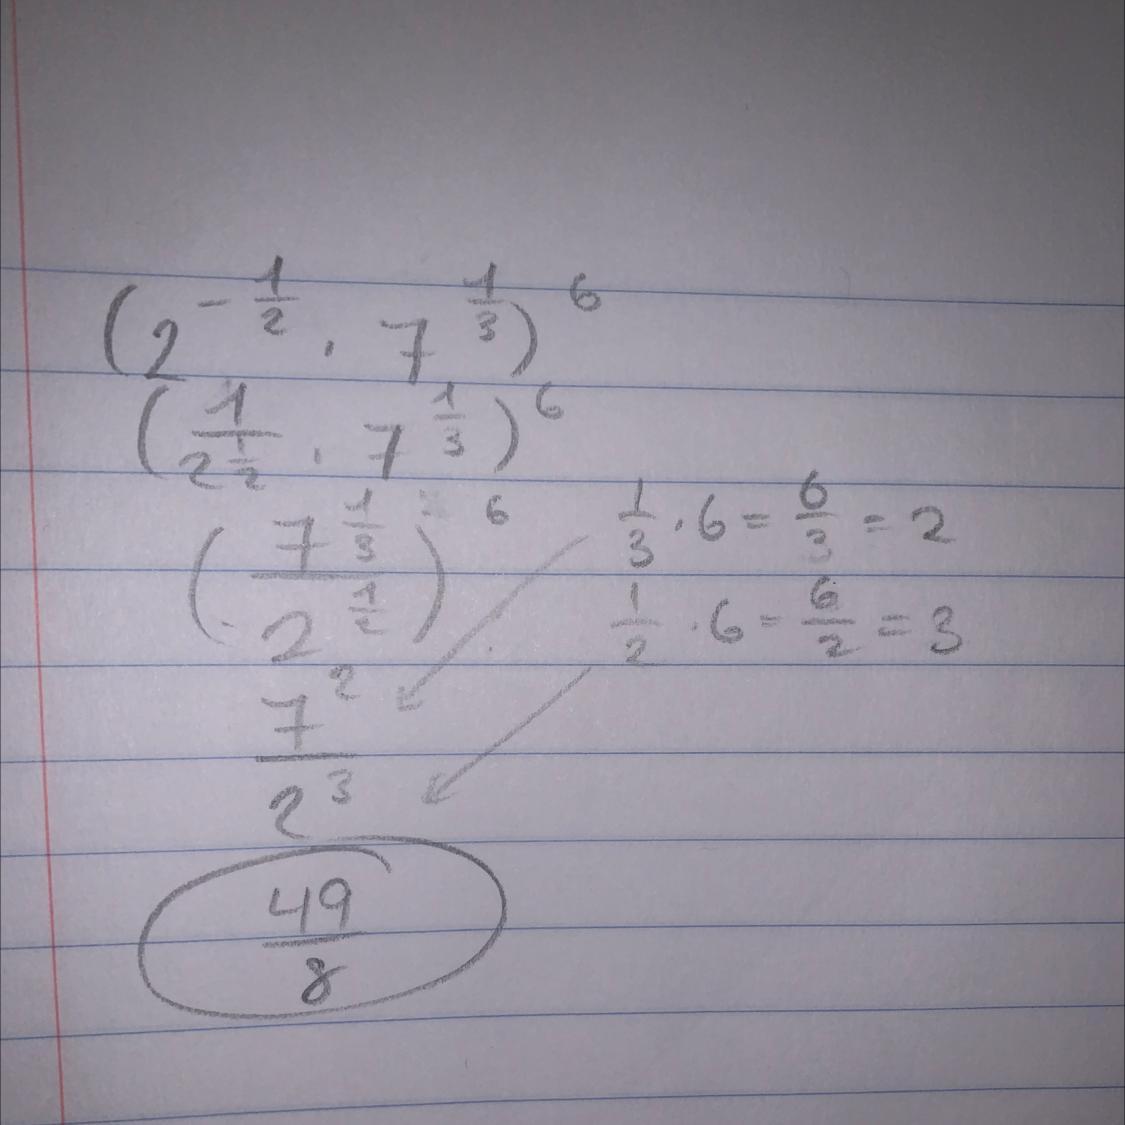 (2^{-\frac{1}{2}} · 7^{\frac{1}{3}})^6
(\frac{1}{2^{\frac{1}{2}}} · 7^{\frac{1}{3}})^6
(\frac{7^{\frac{1}{3}}}{2^{\frac{1}{2}}})^6
\frac{1}{3} · 6 = \frac{6}{3} = 2
\frac{1}{2} · 6 = \frac{6}{2} = 3
\frac{7^2}{2^3}
\frac{49}{8}